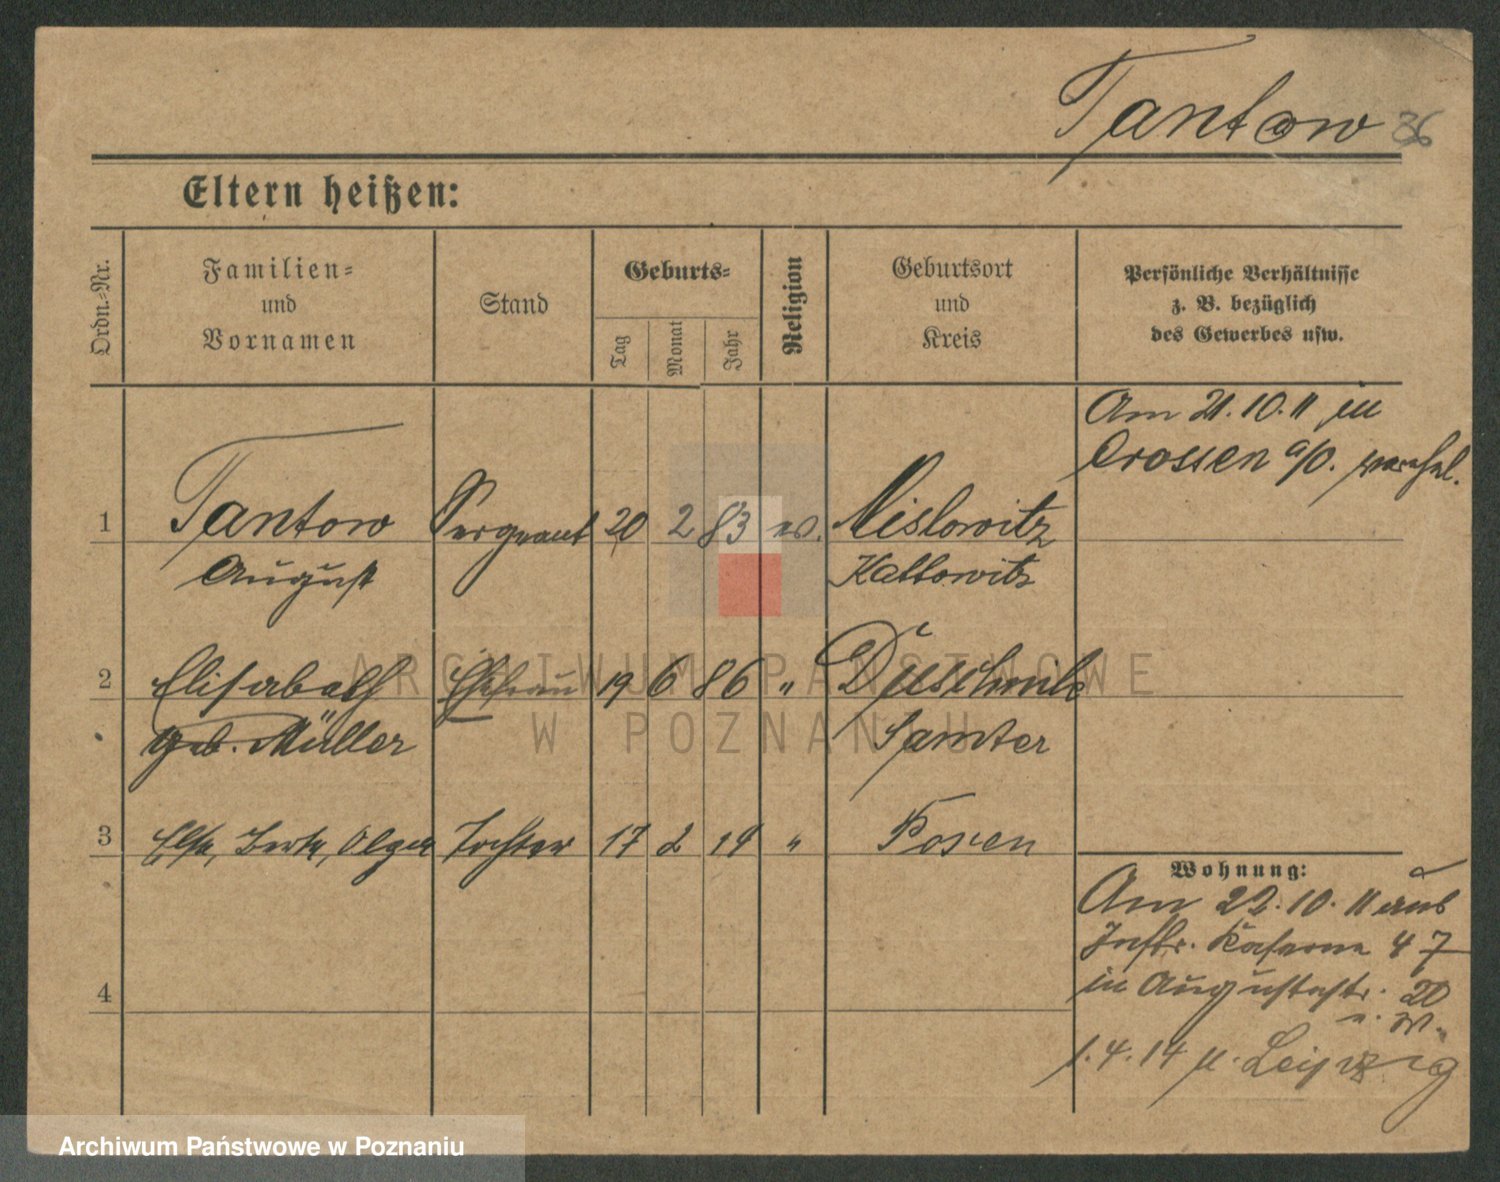 Tantow 36
Eltern heißen:
Ordn.-Nr.
Familien-
und
Vornamen
Stand
Geburts-
Tag
Monat
Jahr
Religion
Geburtsort
und
Kreis
Persönliche Verhältnisse
z. B. bezüglich
des Gewerbes usw.
Am 21.10.11 in
Crossen a/O. verehel.
1 Tantow Sergeant 20 2 83 ev. Nislowitz
August Kattowitz
2 Elisabeth Ehefrau 19 6 86 "
geb. Müller Samter
3 Else, Berta, Olga Tochter 17 2 14 " Posen
Wohnung:
Am 22.10.11 aus
Inftr. Kaserne 47
in Augustastr. 20
4
1.4.14 n. Leipzig
ARCHIWUM PAŃSTWOWE
W POZNANIU
Archiwum Państwowe w Poznaniu